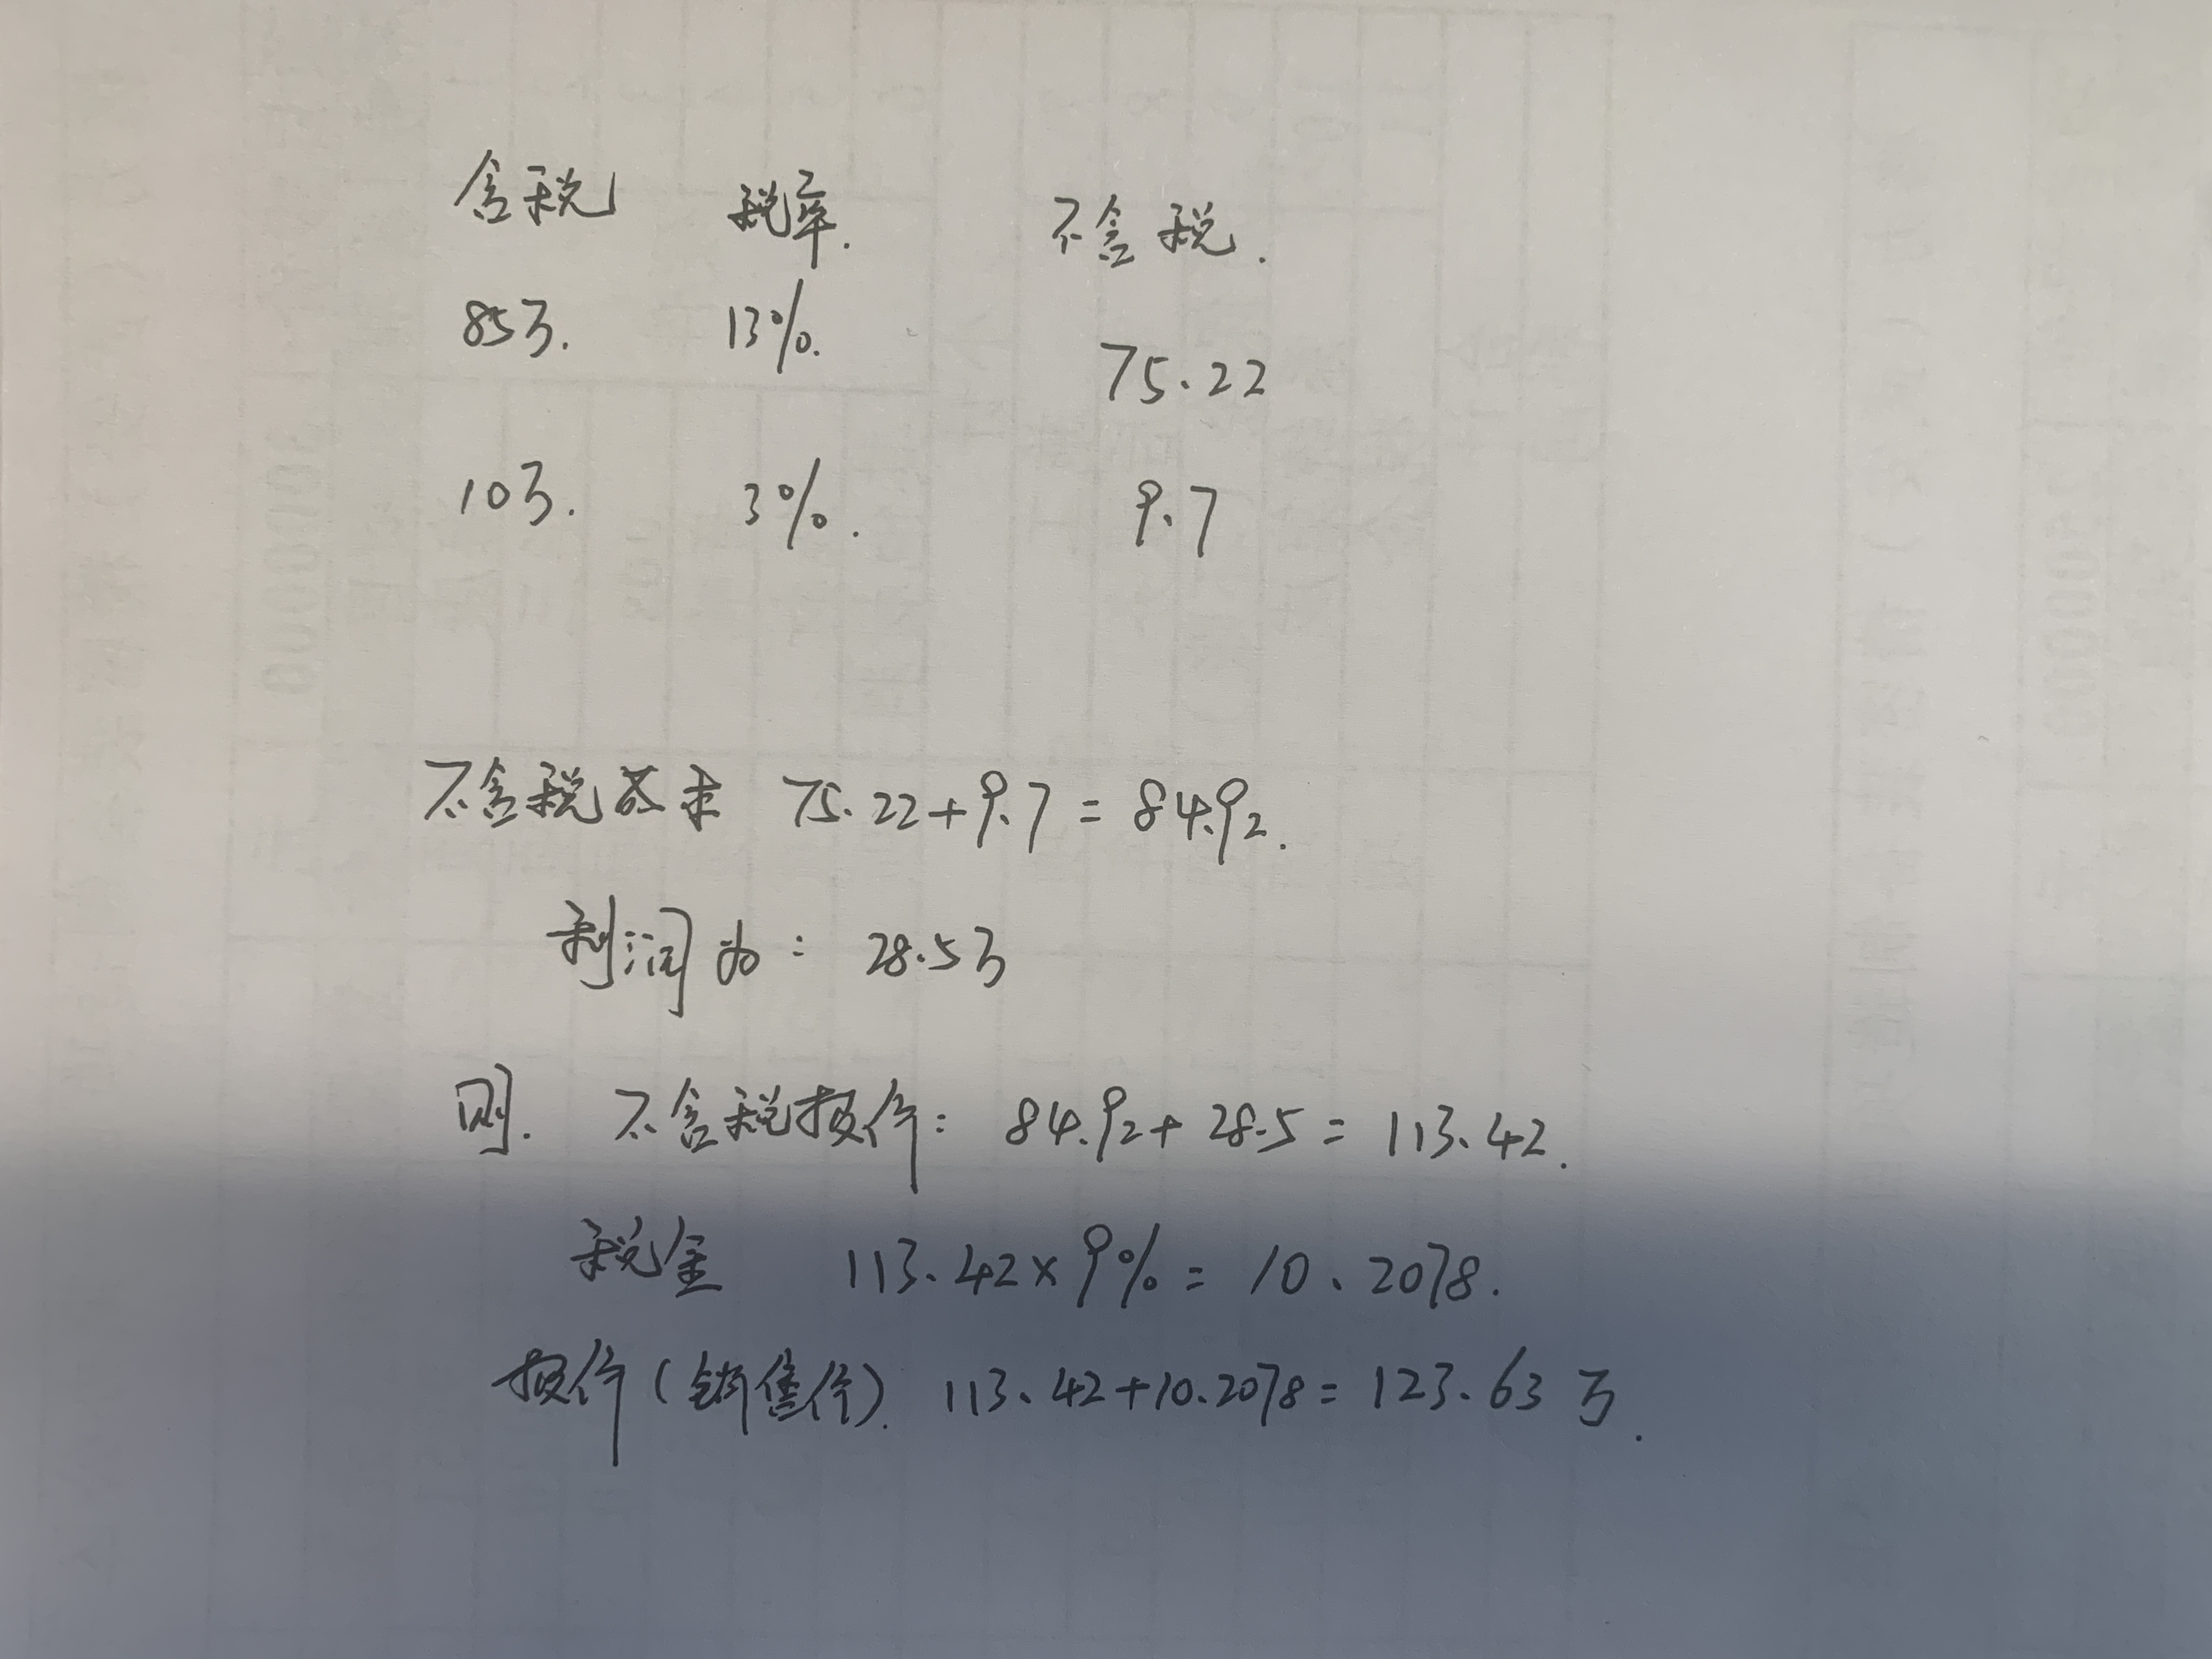 含税 税率. 不含税.
85万. 13%. 75.22
10万. 3%. 9.7
不含税成本 75.22+9.7=84.92.
利润为: 28.5万
则. 不含税报价: 84.92+28.5=113.42.
税金 113.42×9%=10.2078.
报价(销售价). 113.42+10.2078=123.63万.
3000000
2600000